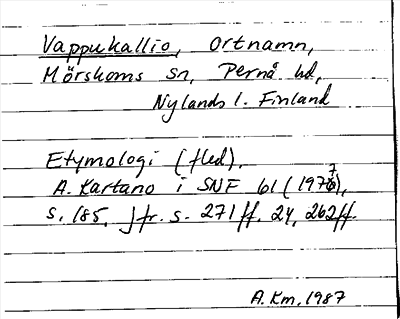 Vappukallio, Ortnamn,
Mörskoms sn, Pernå hd,
Nylands l. Finland
Etymologi (fled).
A. Kartano i SNF 61 (1977),
s. 185. Jfr. s. 271 ff. 24, 262 ff.
A.Km. 1987